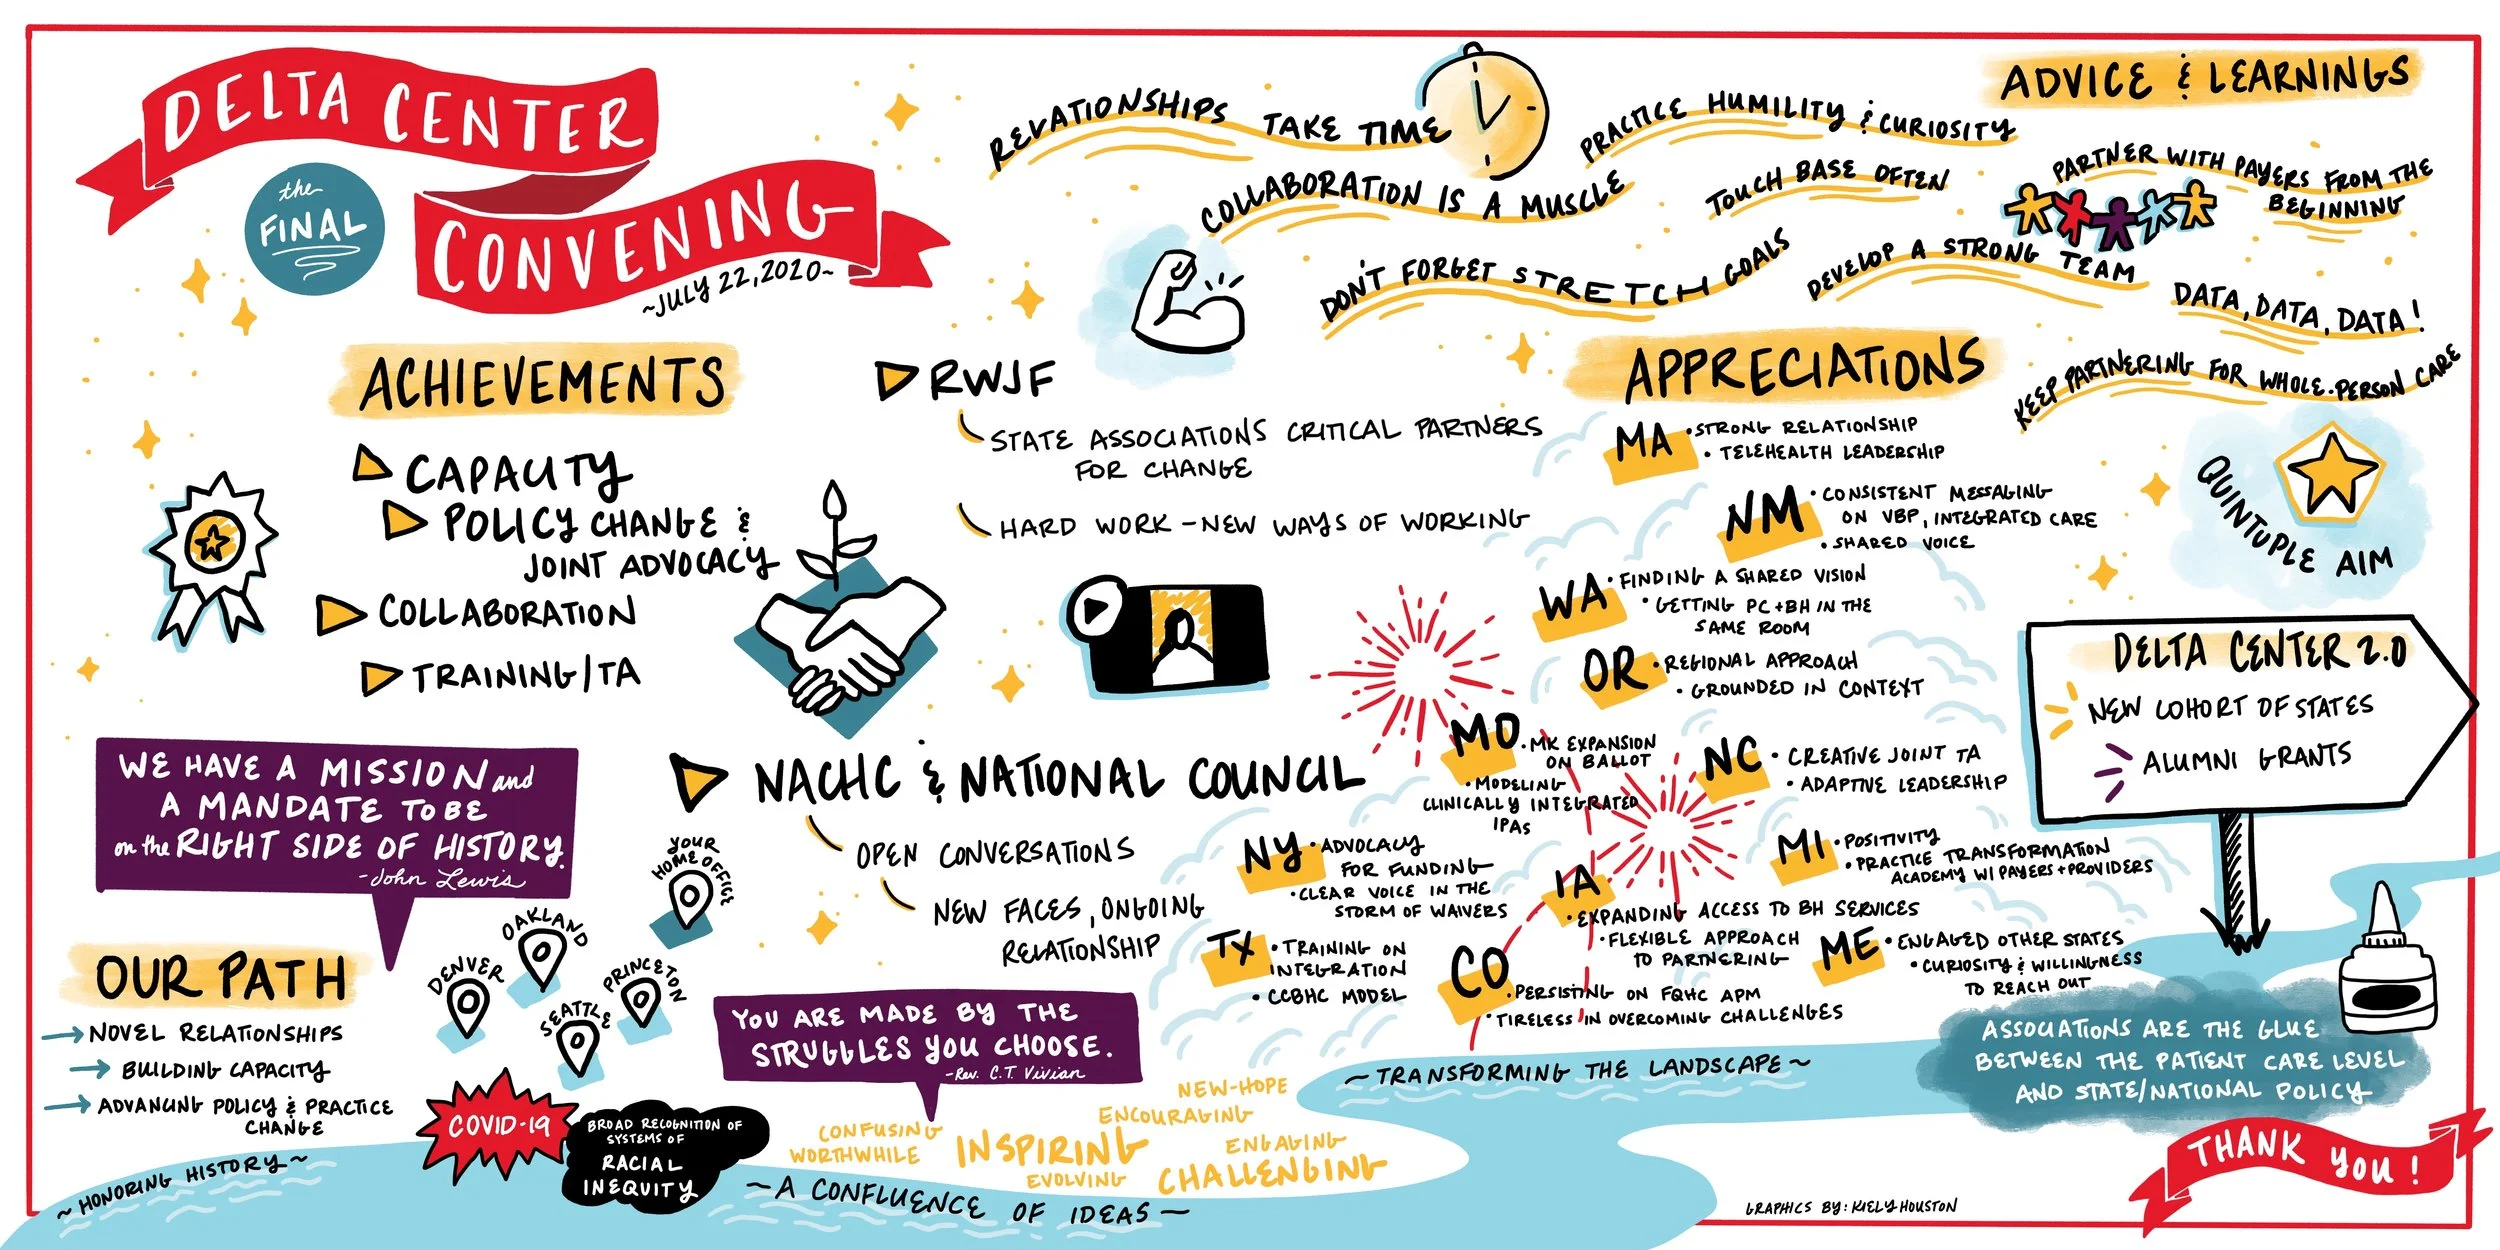 DELTA CENTER
the
FINAL
CONVENING
~JULY 22, 2020~
ACHIEVEMENTS
CAPACITY
POLICY CHANGE &
JOINT ADVOCACY
COLLABORATION
TRAINING/TA
RELATIONSHIPS TAKE TIME
COLLABORATION IS A MUSCLE
DON'T FORGET STRETCH GOALS
ADVICE & LEARNINGS
PRACTICE HUMILITY & CURIOSITY
TOUCH BASE OFTEN
PARTNER WITH PAYERS FROM THE
BEGINNING
DEVELOP A STRONG TEAM
DATA, DATA, DATA!
KEEP PARTNERING FOR WHOLE-PERSON CARE
QUINTUPLE AIM
RWJF
STATE ASSOCIATIONS CRITICAL PARTNERS
FOR CHANGE
HARD WORK - NEW WAYS OF WORKING
NACHC & NATIONAL COUNCIL
OPEN CONVERSATIONS
NEW FACES, ONGOING
RELATIONSHIP
APPRECIATIONS
MA
• STRONG RELATIONSHIP
• TELEHEALTH LEADERSHIP
NM
• CONSISTENT MESSAGING
ON VBP, INTEGRATED CARE
• SHARED VOICE
WA
• FINDING A SHARED VISION
• GETTING PC + BH IN THE
SAME ROOM
OR
• REGIONAL APPROACH
• GROUNDED IN CONTEXT
MO
• MK EXPANSION
ON BALLOT
• MODELING
CLINICALLY INTEGRATED
IPAs
NC
• CREATIVE JOINT TA
• ADAPTIVE LEADERSHIP
NY
• ADVOCACY
FOR FUNDING
• CLEAR VOICE IN THE
STORM OF WAIVERS
MI
• POSITIVITY
• PRACTICE TRANSFORMATION
ACADEMY W/ PAYERS + PROVIDERS
IA
• EXPANDING ACCESS TO BH SERVICES
• FLEXIBLE APPROACH
TO PARTNERING
TX
• TRAINING ON
INTEGRATION
• CCBHC MODEL
CO
• PERSISTING ON FQHC APM
• TIRELESS IN OVERCOMING CHALLENGES
ME
• ENGAGED OTHER STATES
• CURIOSITY & WILLINGNESS
TO REACH OUT
DELTA CENTER 2.0
NEW COHORT OF STATES
ALUMNI GRANTS
WE HAVE A MISSION and
A MANDATE TO BE
on the RIGHT SIDE OF HISTORY.
-John Lewis
OUR PATH
NOVEL RELATIONSHIPS
BUILDING CAPACITY
ADVANCING POLICY & PRACTICE
CHANGE
DENVER
OAKLAND
SEATTLE
PRINCETON
YOUR
HOME OFFICE
YOU ARE MADE BY THE
STRUGGLES YOU CHOOSE.
-Rev. C.T. Vivian
~HONORING HISTORY~
COVID-19
BROAD RECOGNITION OF
SYSTEMS OF
RACIAL
INEQUITY
NEW-HOPE
ENCOURAGING
CONFUSING
WORTHWHILE
INSPIRING
EVOLVING
ENGAGING
CHALLENGING
~A CONFLUENCE OF IDEAS~
~TRANSFORMING THE LANDSCAPE~
ASSOCIATIONS ARE THE GLUE
BETWEEN THE PATIENT CARE LEVEL
AND STATE/NATIONAL POLICY
THANK YOU!
GRAPHICS BY: KIELY HOUSTON